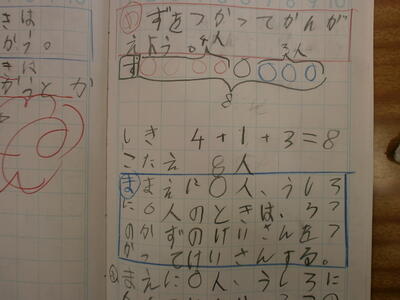 きは
かう。
きに
ずをつかってかんが
えよう。4人 3人
ず
8
しき 4+1+3=8
こたえ 8人
ま まえに〇人、うしろ
に〇人のときは、3つ
のかずのけいさんをつ
かってけいさんする。
まえに〇人、うしろに